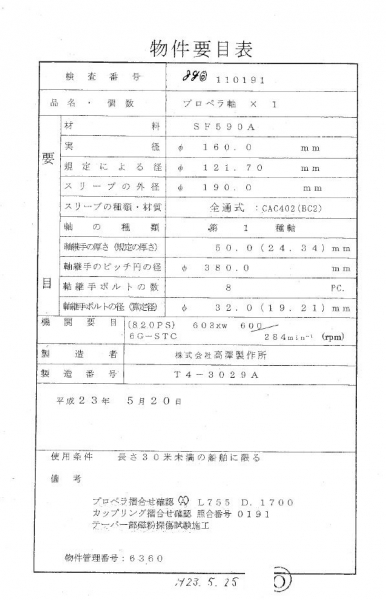 物件要目表
検査番号 110191
品名・個数 プロペラ軸 × 1
要目
材料 SF590A
実径 φ 160.0 mm
規定による径 φ 121.70 mm
スリーブの外径 φ 190.0 mm
スリーブの種類・材質 全通式:CAC402(BC2)
軸の種類 第1種軸
軸継手の厚さ(規定の厚さ) 60.0(24.34)mm
軸継手のピッチ円の径 φ 380.0 mm
軸継手ボルトの数 8 PC.
軸継手ボルトの径(算定径) φ 32.0(19.21)mm
機関要目 (820PS) 603KW 600/
6G-STC 284min⁻¹ (rpm)
製造者 株式会社高澤製作所
製造番号 T4-3029A
平成23年 5月20日
使用条件 長さ30米未満の船舶に限る
備考
プロペラ摺合せ確認 L755 D.1700
カップリング摺合せ確認 照合番号 0191
テーパー部磁粉探傷試験施工
物件管理番号:6360
H23.5.25